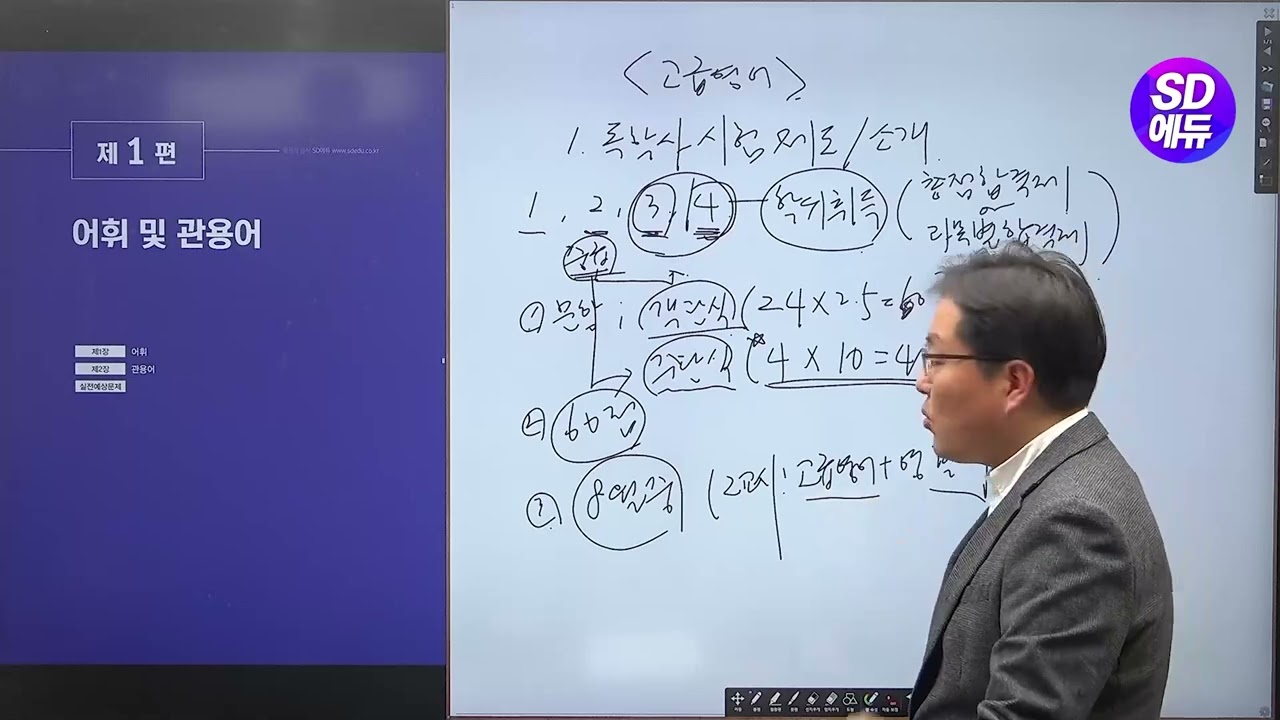 제 1 편
SD에듀 www.sdedu.co.kr
어휘 및 관용어
제1장 어휘
제2장 관용어
실전예상문제
<고급영어>
1. 독학사 시험 제도/소개
1, 2, 3, 4 - 학위취득 (총점합격제
과목별합격제)
① 문항 ; 객관식 (24 × 2.5 = 60
주관식 (4 × 10 = 4
60점
② 8월중 (2교시: 고급영어 + 영
SD
에듀